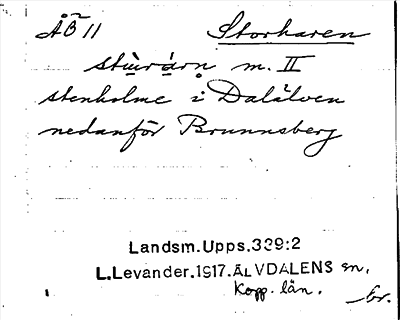 ÄB 11 Storharen
stùrárn m. II
stenholme i Dalälven
nedanför Brunnsberg
Landsm.Upps.339:2
L.Levander.1917.ÄLVDALENS sn.
Kopp. län.